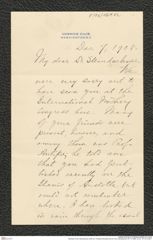 COSMOS CLUB
WASHINGTON, D.C.
Dec 7, 1908.
My dear Dr
We
were very sorry not to
have seen you at the
International Fishery
Congress here. Many
of your friends were
present, however, and
among them was Prof.
he told me
that you had found
what recently on the
of Aristotle but
could not remember
where. I have looked
in vain through the usual